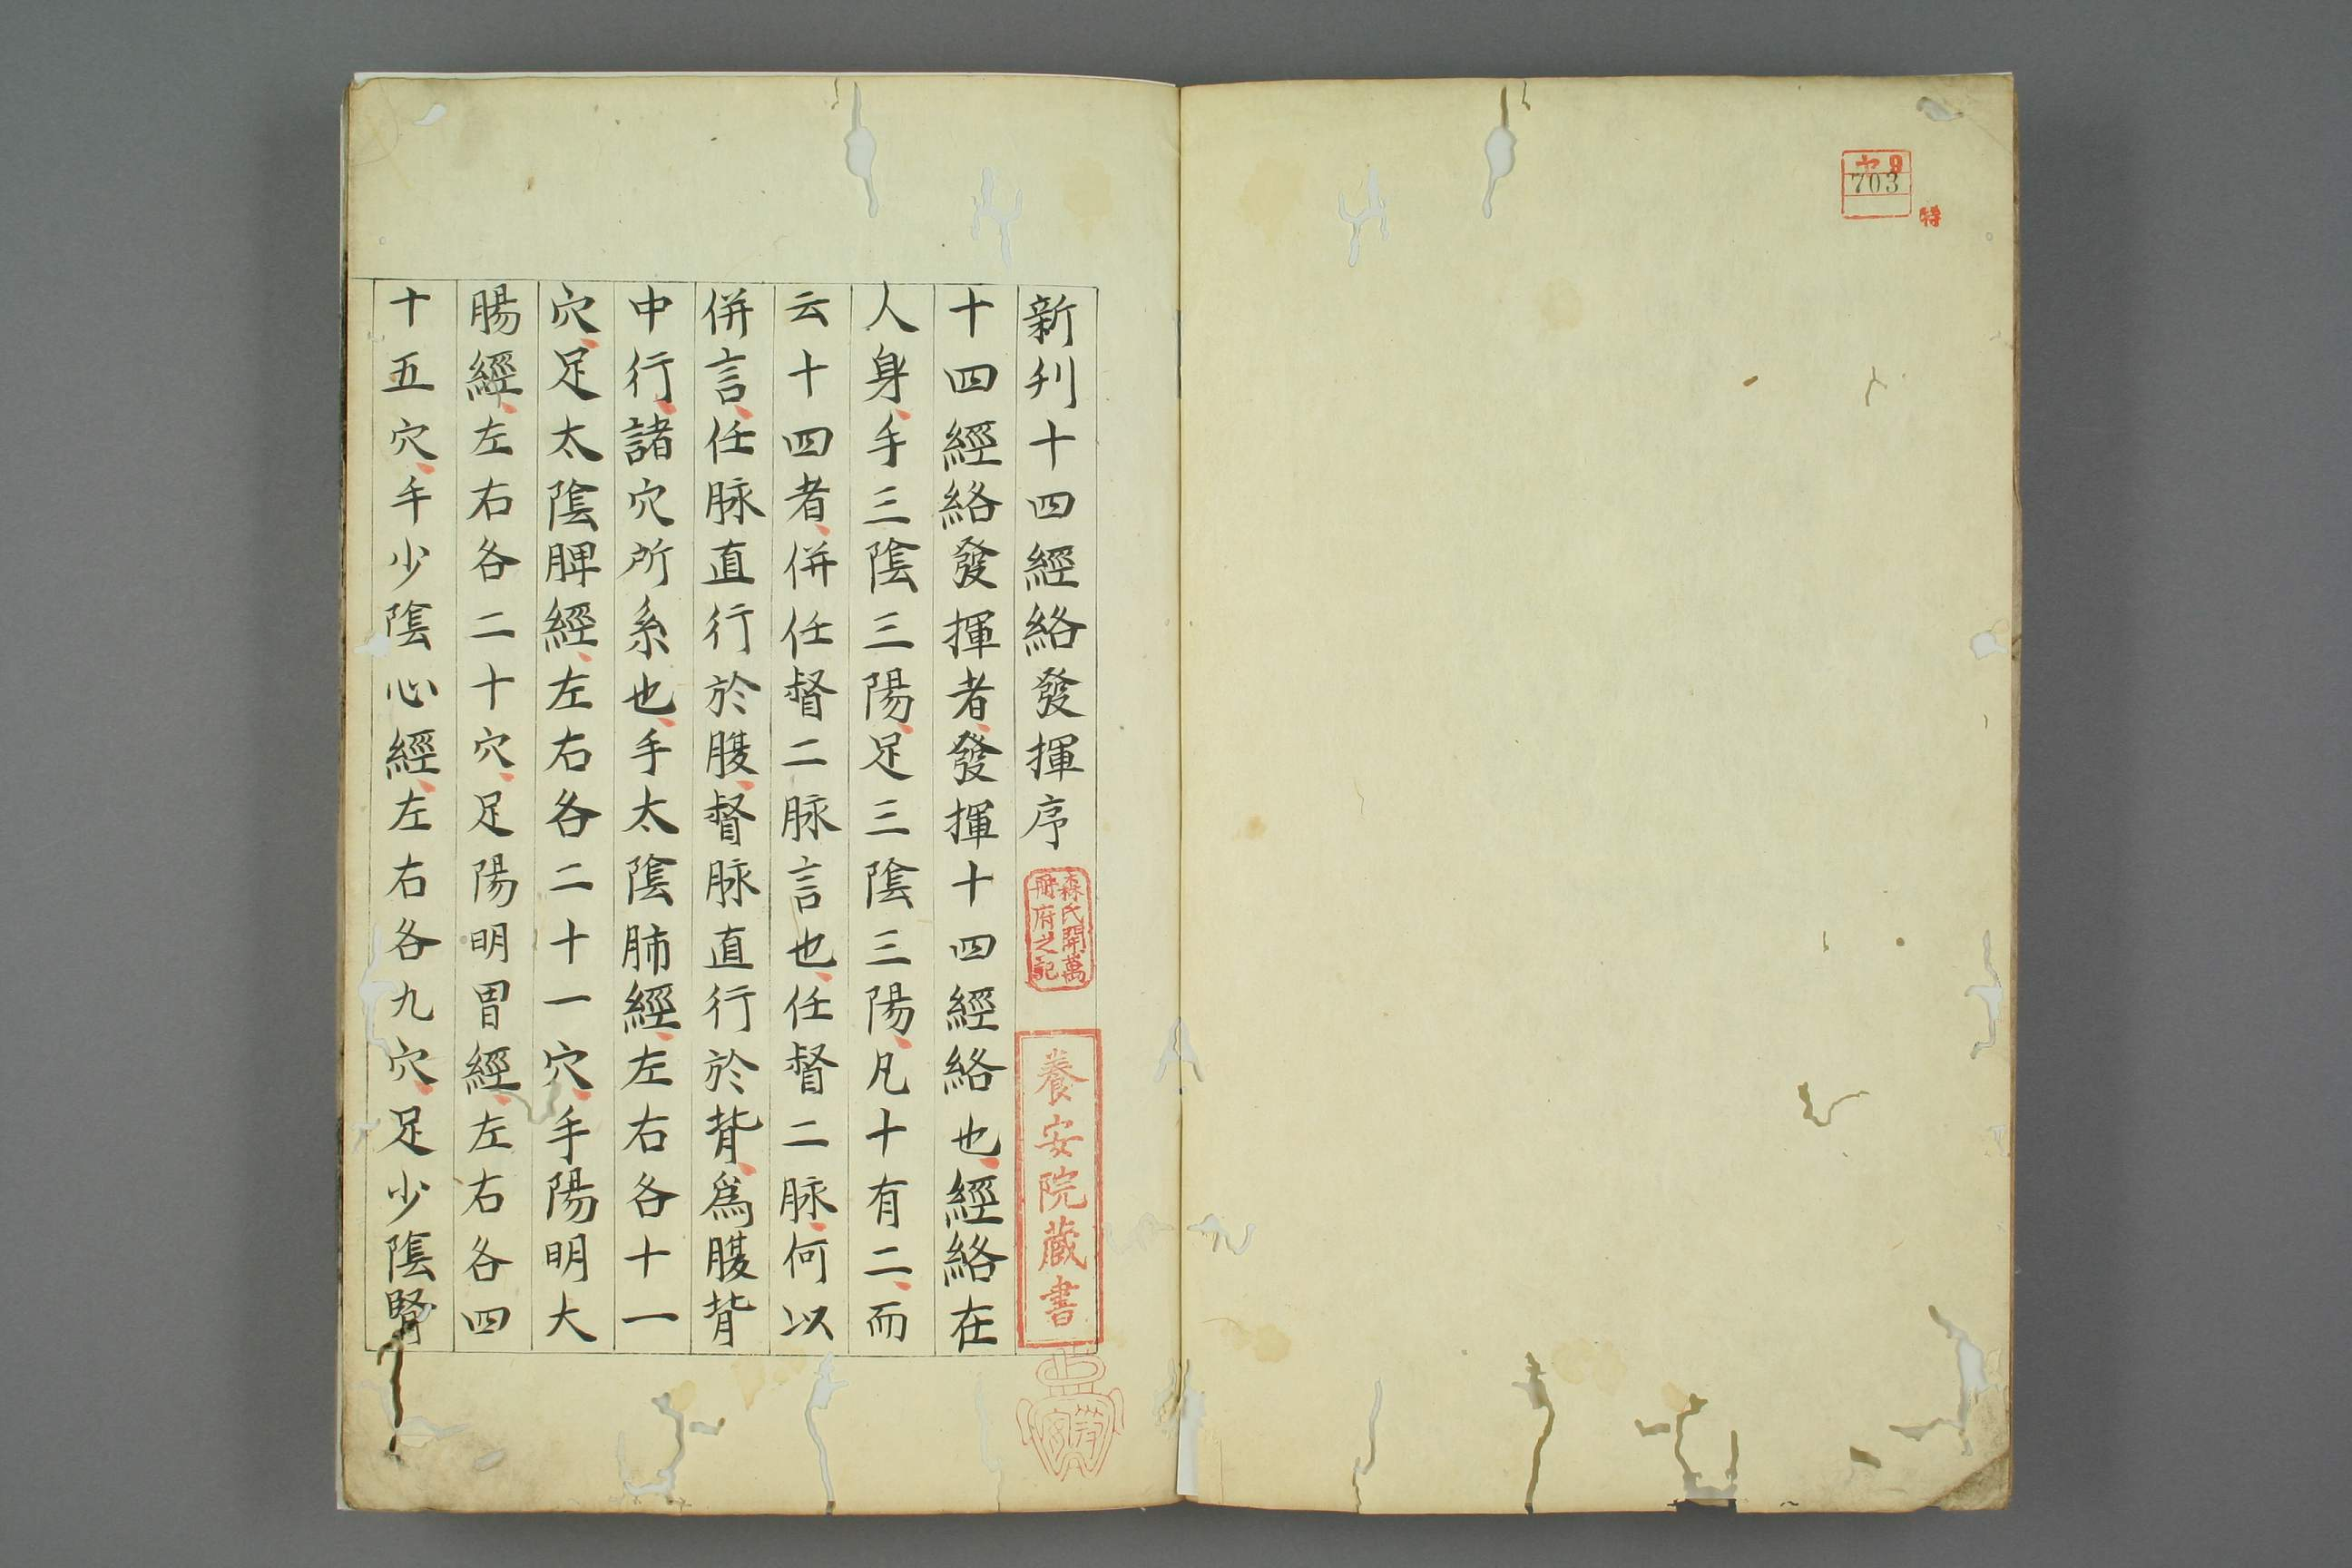 ヤ9
703
特
新刋十四經絡發揮序
森氏開萬
冊府之記
養安院藏書
十四經絡發揮者、發揮十四經絡也、經絡在
人身、手三陰三陽、足三陰三陽、凡十有二、而
云十四者、併任督二脉言也、任督二脉、何以
併言、任脉直行於腹、督脉直行於背、爲腹背
中行、諸穴所系也、手太陰肺經、左右各十一
穴、足太陰脾經、左右各二十一穴、手陽明大
腸經、左右各二十穴、足陽明胃經、左右各四
十五穴、手少陰心經、左右各九穴、足少陰腎